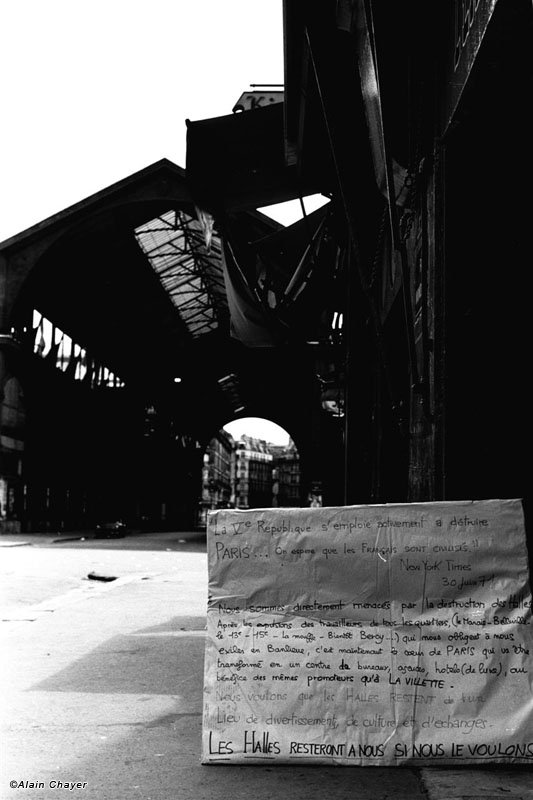 K
"La Vᵉ République s'emploie activement à détruire
PARIS... On espère que les Français sont civilisés"
New York Times
30 juin 71
Nous sommes directement menacés par la destruction des Halles
Après les expulsions des travailleurs de tous les quartiers, (le Marais - Belleville
le 13e - 15e - la mouffe - Bientôt Bercy ...) qui nous obligent à nous
exiler en Banlieue, c'est maintenant le cœur de PARIS qui va être
transformé en un centre de bureaux, assises, hotels (de luxe), au
bénéfice des mêmes promoteurs qu'à LA VILLETTE.
Nous voulons que les HALLES RESTENT
Lieu de divertissement, de culture et d'échanges.
LES HALLES RESTERONT A NOUS SI NOUS LE VOULONS
©Alain Chayer